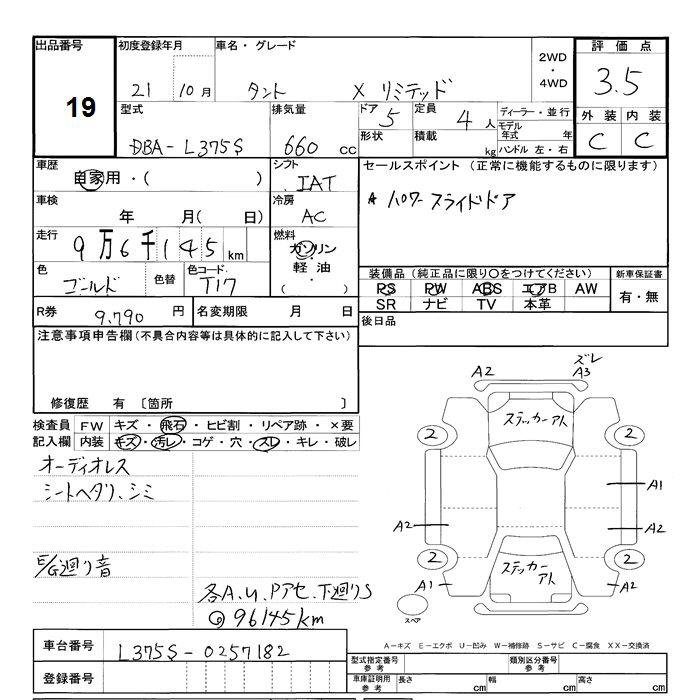 出品番号
19
初度登録年月
21 10月
車名・グレード
タント X リミテッド
2WD
・
4WD
評価点
3.5
外装 内装
C C
型式
DBA-L375S
排気量
660 cc
ドア 5
定員 4人
形状
積載 kg
ディーラー・並行
モデル年式 年
ハンドル 左・右
車歴
自家用・( )
シフト
IAT
セールスポイント (正常に機能するものに限ります)
パワースライドドア
車検
年 月( 日)
冷房
AC
走行
9万6千145km
燃料
ガソリン
・
軽油
( )
色
ゴールド
色替
色コード
T17
装備品(純正品に限り○をつけてください)
PS PW ABS エアB AW
SR ナビ TV 本革
新車保証書
有・無
R券 9,790円
名変期限 月 日
後日品
注意事項申告欄(不具合内容等は具体的に記入して下さい)
修復歴 有 〔箇所 〕
検査員記入欄
FW キズ・飛石・ヒビ割・リペア跡・×要
内装 キズ・汚レ・コゲ・穴・スレ・キレ・破レ
オーディオレス
シートヘタリ、シミ
E/G廻り音
各A.U.Pアセ.下廻りS
◎96145km
ズレ
A2 A3
ステッカーアト
2 2
A1
A2 A2
ステッカーアト
2 2
A1 A2
スペア
A-キズ E-エクボ U-凹み W-補修跡 S-サビ C-腐食 XX-交換済
車台番号 L375S-0257182
登録番号
型式指定番号 参考
類別区分番号 参考
車庫証明用 参考
長さ cm 幅 cm 高さ cm